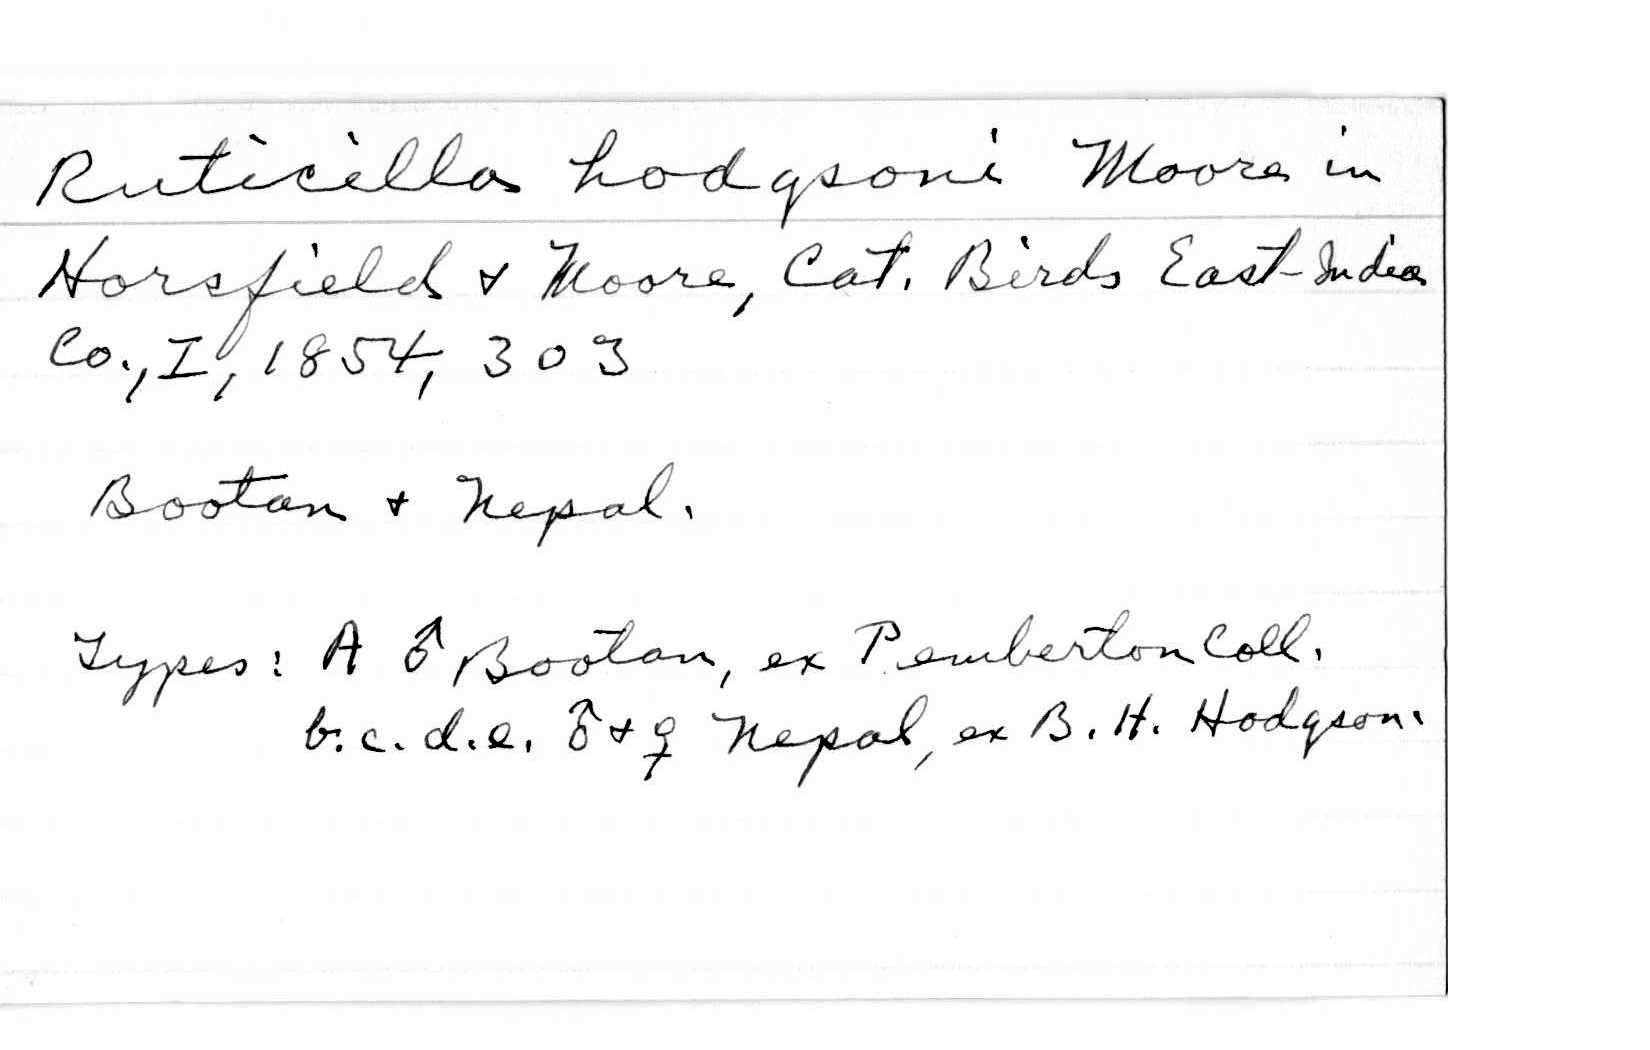 Ruticilla hodgsoni Moore in
Horsfield & Moore, Cat. Birds East-India
Co., I, 1854, 303
Bootan & Nepal.
Types: A ♂ Bootan, ex Pemberton Coll.
b.c.d.e. ♂ & ♀ Nepal, ex B. H. Hodgson.